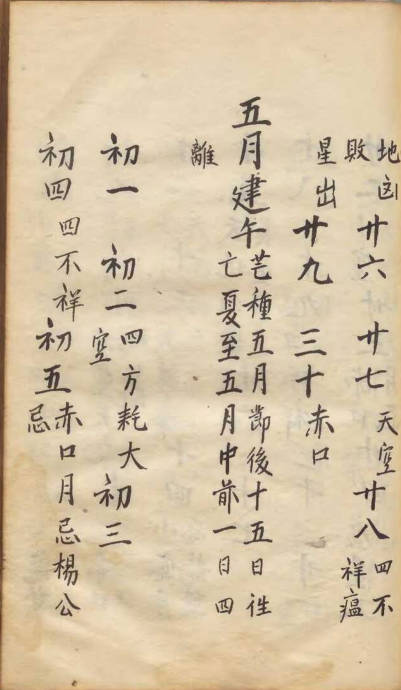 地凶敗廿六 廿七天空廿八四不祥瘟
星出廿九 三十赤口
五月建午芒種五月節後十五日往亡夏至五月中前一日四
離
初一 初二四方耗大空初三
初四四不祥初五赤口月忌楊公忌